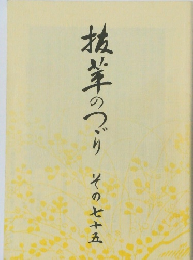 抜萃のつゞり その七十五